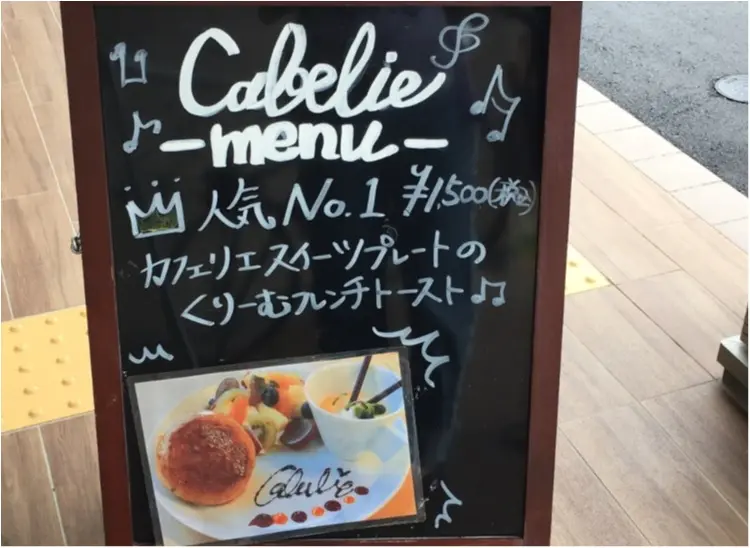 Cabelie
-menu-
人気No.1 ¥1,500(税込)
カフェリエスイーツプレートの
くりーむフレンチトースト♫
Cabelie